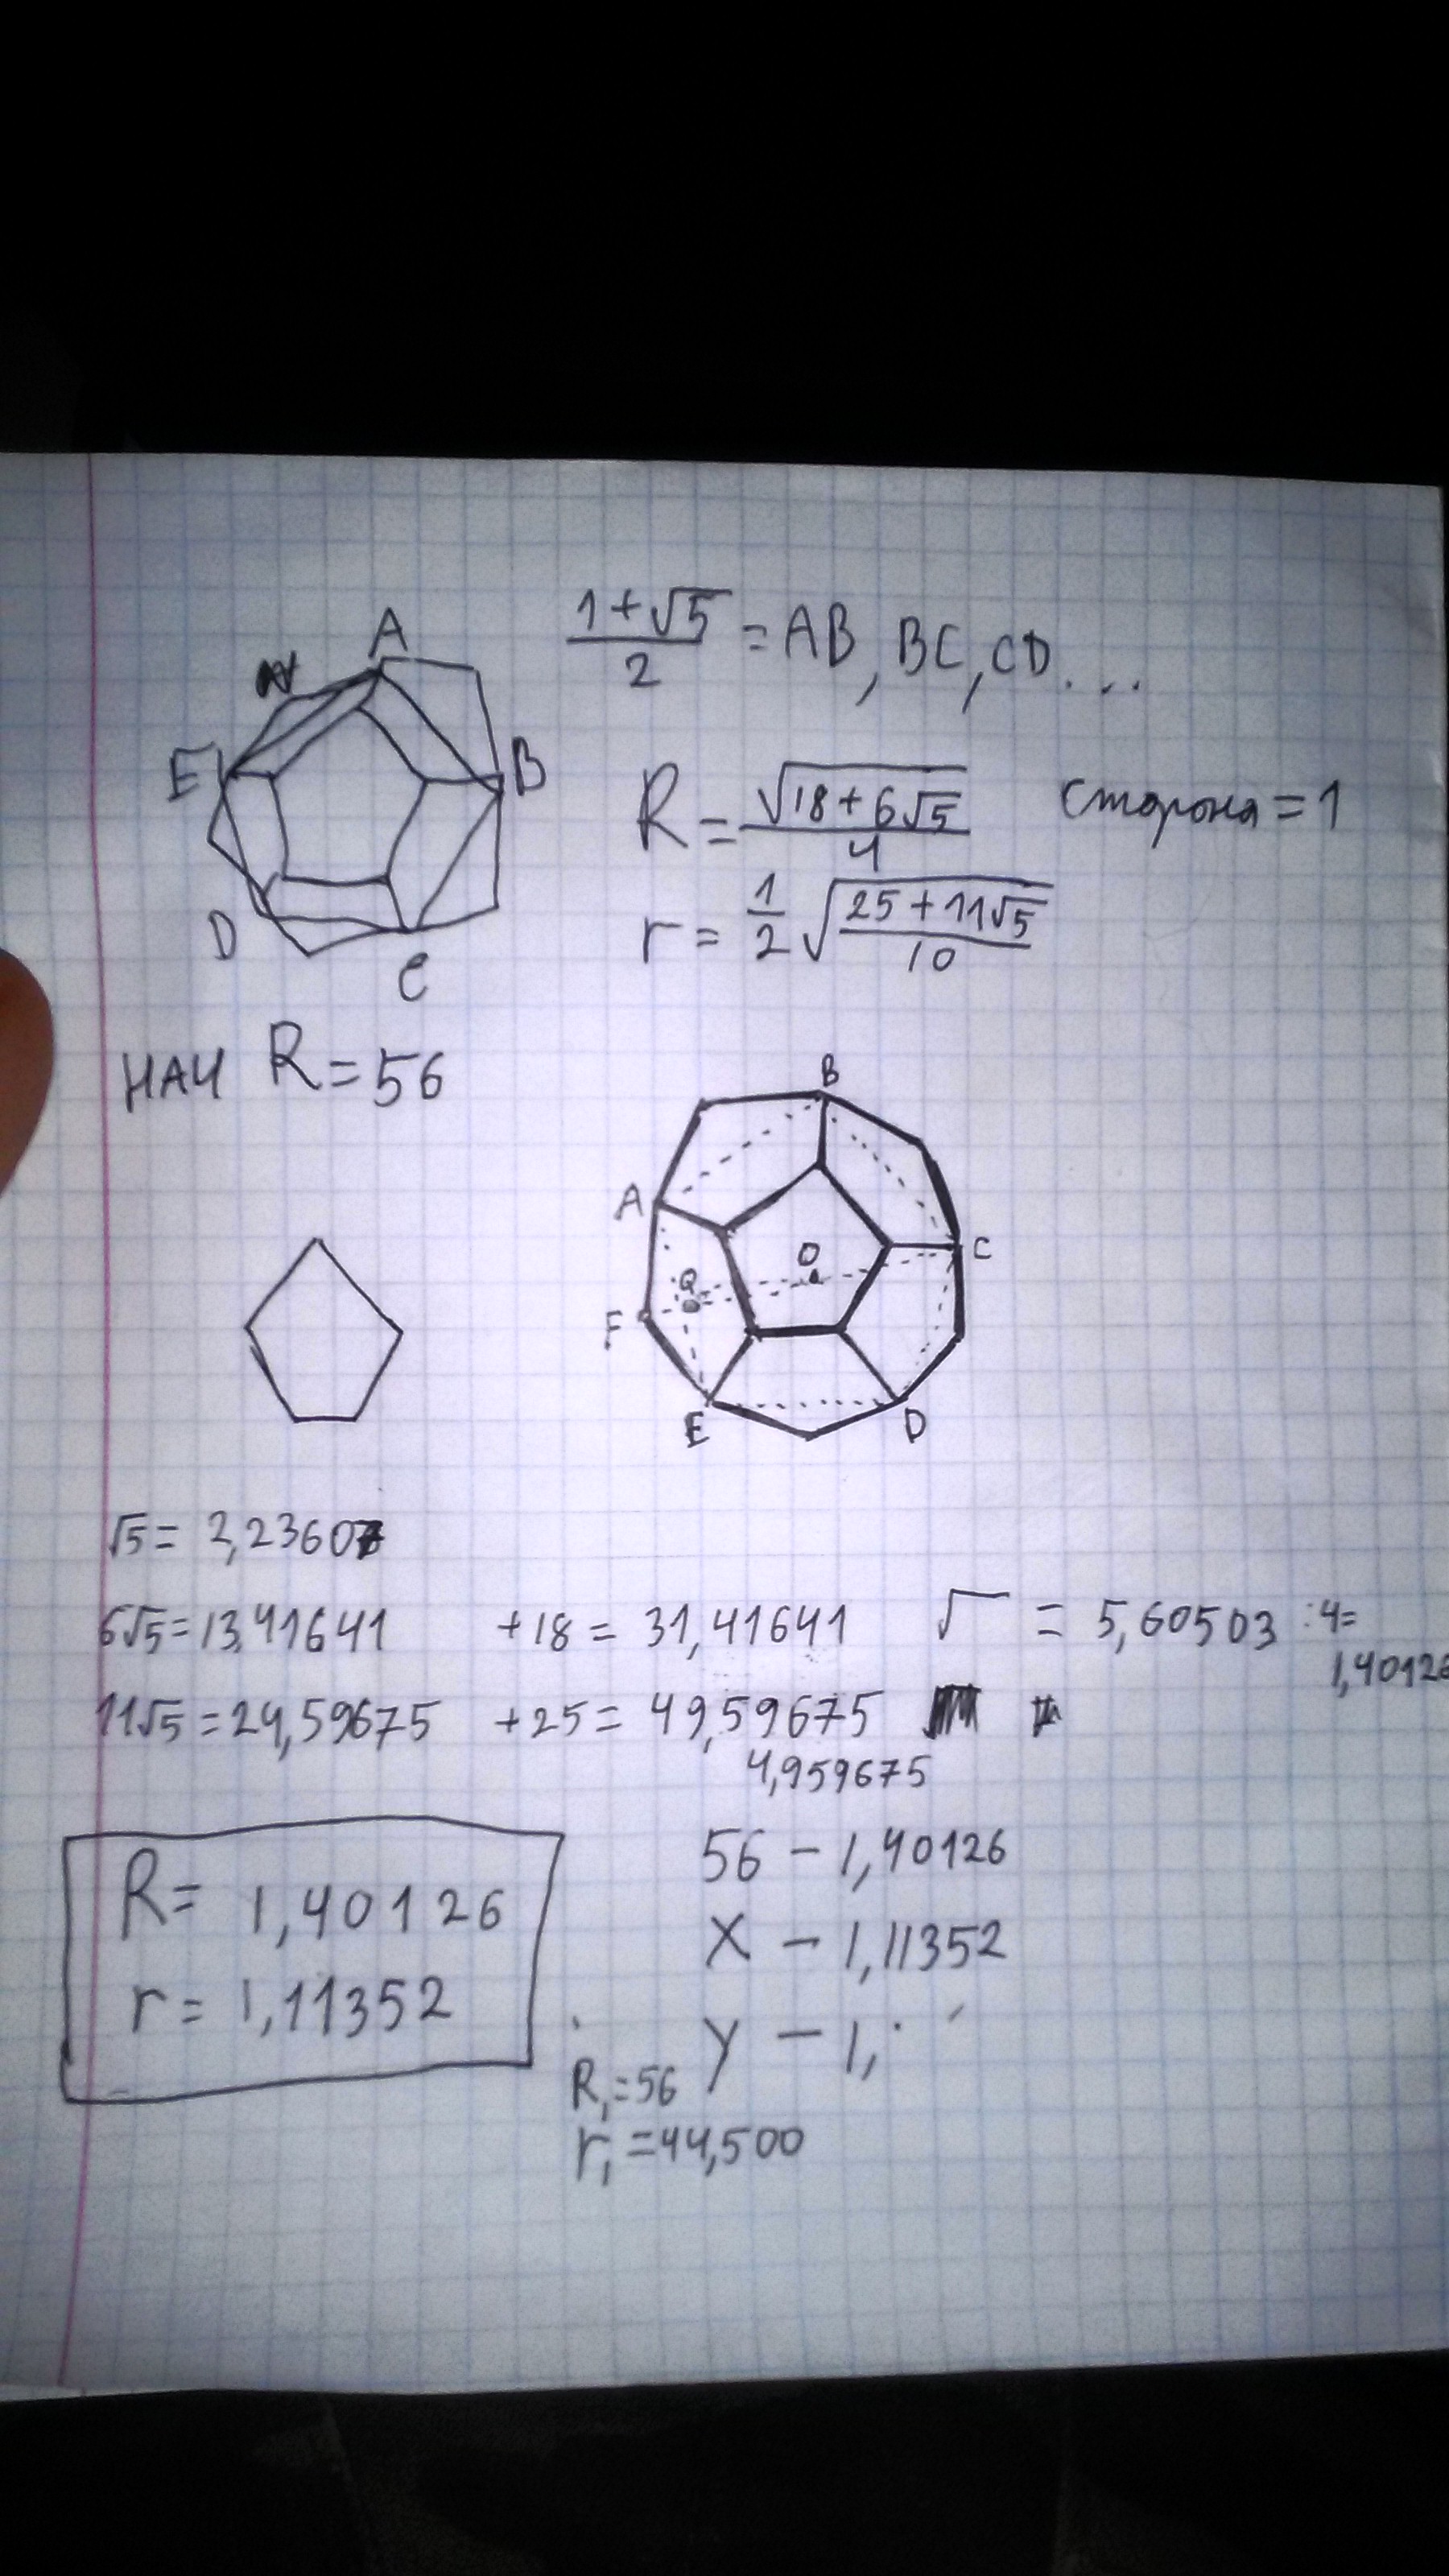 A
E
B
D
C
(1+√5)/2 = AB, BC, CD...
R = √(18+6√5)/4 сторона = 1
r = 1/2 √((25+11√5)/10)
НАЧ R=56
B
A
O
C
Q
F
E
D
√5 = 2,23607
6√5 = 13,41641 +18 = 31,41641 √ = 5,60503 :4=
1,40126
11√5 = 24,59675 +25 = 49,59675
4,959675
R = 1,40126
r = 1,11352
56 – 1,40126
X – 1,11352
y – 1,
R₁=56
r₁=44,500